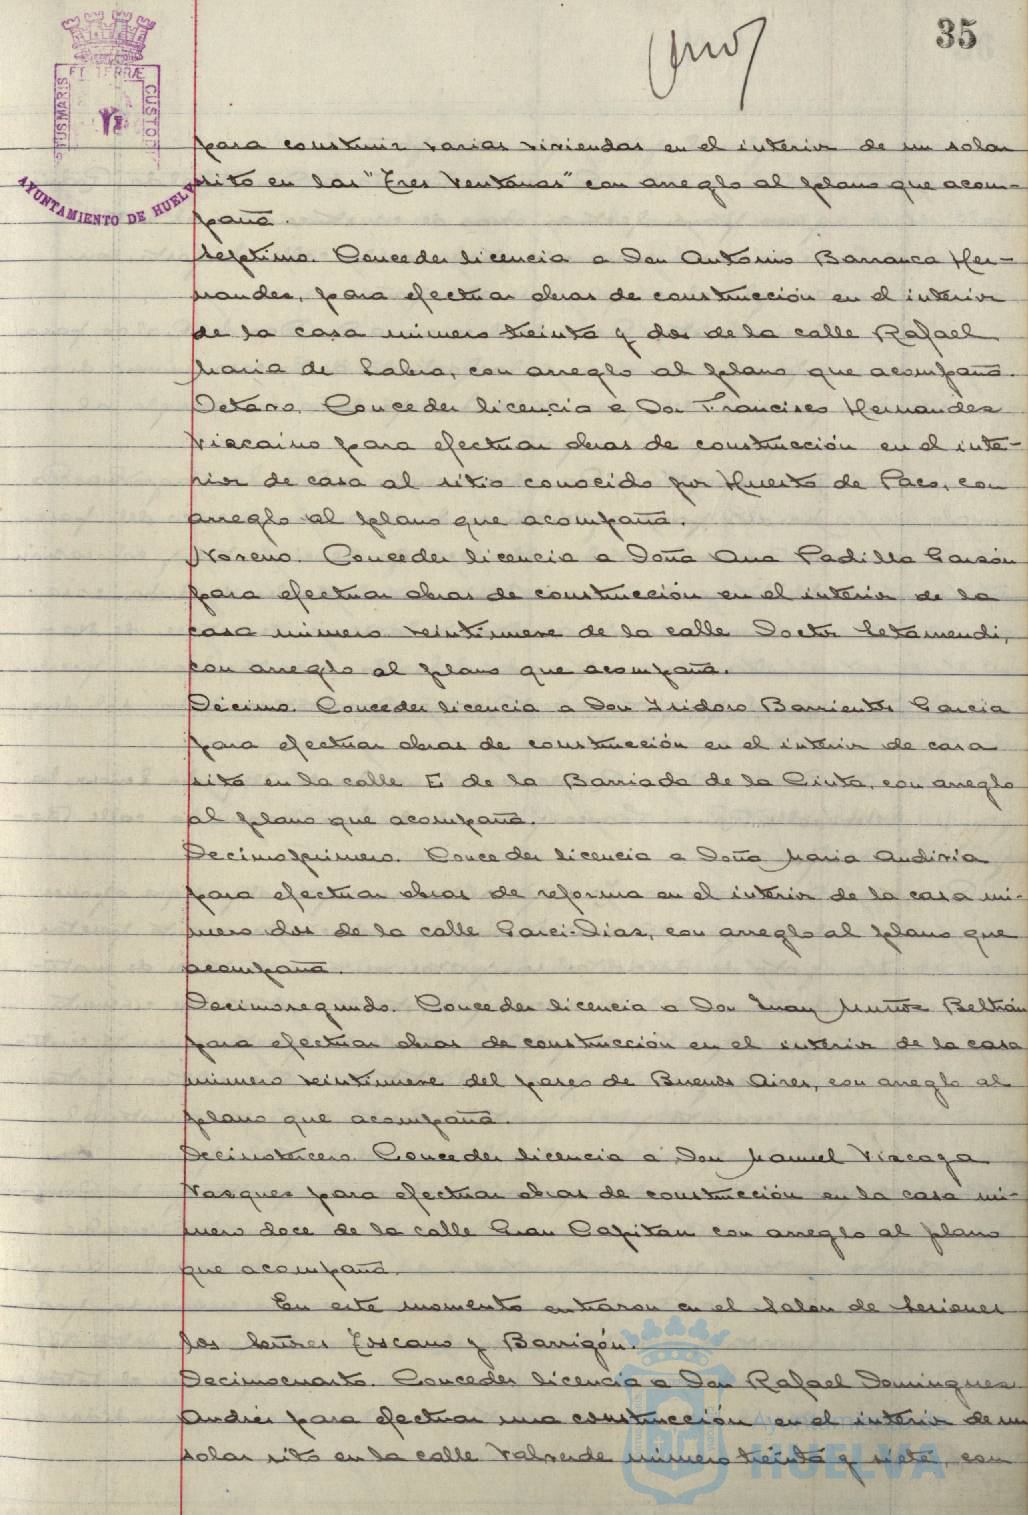 35
ET TERRÆ
TUS MARIS
CUSTO
AYUNTAMIENTO DE HUELVA
para construir varias viviendas en el interior de un solar
sito en las "Tres Ventanas" con arreglo al plano que acom-
paña.
Septimo. Conceder licencia a Don Antonio Barranca Her-
nandez, para efectuar obras de construcción en el interior
de la casa número treinta y dos de la calle Rafael
Maria de Labra, con arreglo al plano que acompaña.
Octavo. Conceder licencia a Don Francisco Hernandez
Vizcaino para efectuar obras de construcción en el inte-
rior de casa al sitio conocido por Huerto de Paco, con
arreglo al plano que acompaña.
Noveno. Conceder licencia a Doña Ana Padilla Garzón
para efectuar obras de construcción en el interior de la
casa número veintinueve de la calle Doctor Letamendi,
con arreglo al plano que acompaña.
Décimo. Conceder licencia a Don Isidoro Barrientos Garcia
para efectuar obras de construcción en el interior de casa
sita en la calle E de la Barriada de la Cinta, con arreglo
al plano que acompaña.
Decimoprimero. Conceder licencia a Doña Maria Andivia
para efectuar obras de reforma en el interior de la casa nú-
mero dos de la calle Garci-Diaz, con arreglo al plano que
acompaña.
Decimosegundo. Conceder licencia a Don Juan Muñoz Beltrán
para efectuar obras de construcción en el interior de la casa
número veintinueve del paseo de Buenos Aires, con arreglo al
plano que acompaña.
Decimotercero. Conceder licencia a Don Manuel Vizcaya
Vazquez para efectuar obras de construcción en la casa nú-
mero doce de la calle Gran Capitan con arreglo al plano
que acompaña.
En este momento entraron en el Salon de Sesiones
los Señores Toscano y Barrigón.
Decimocuarto. Conceder licencia a Don Rafael Dominguez
Andrés para efectuar una construcción en el interior de un
solar sito en la calle Valverde número treinta y siete, con
Ayuntamiento de
HUELVA